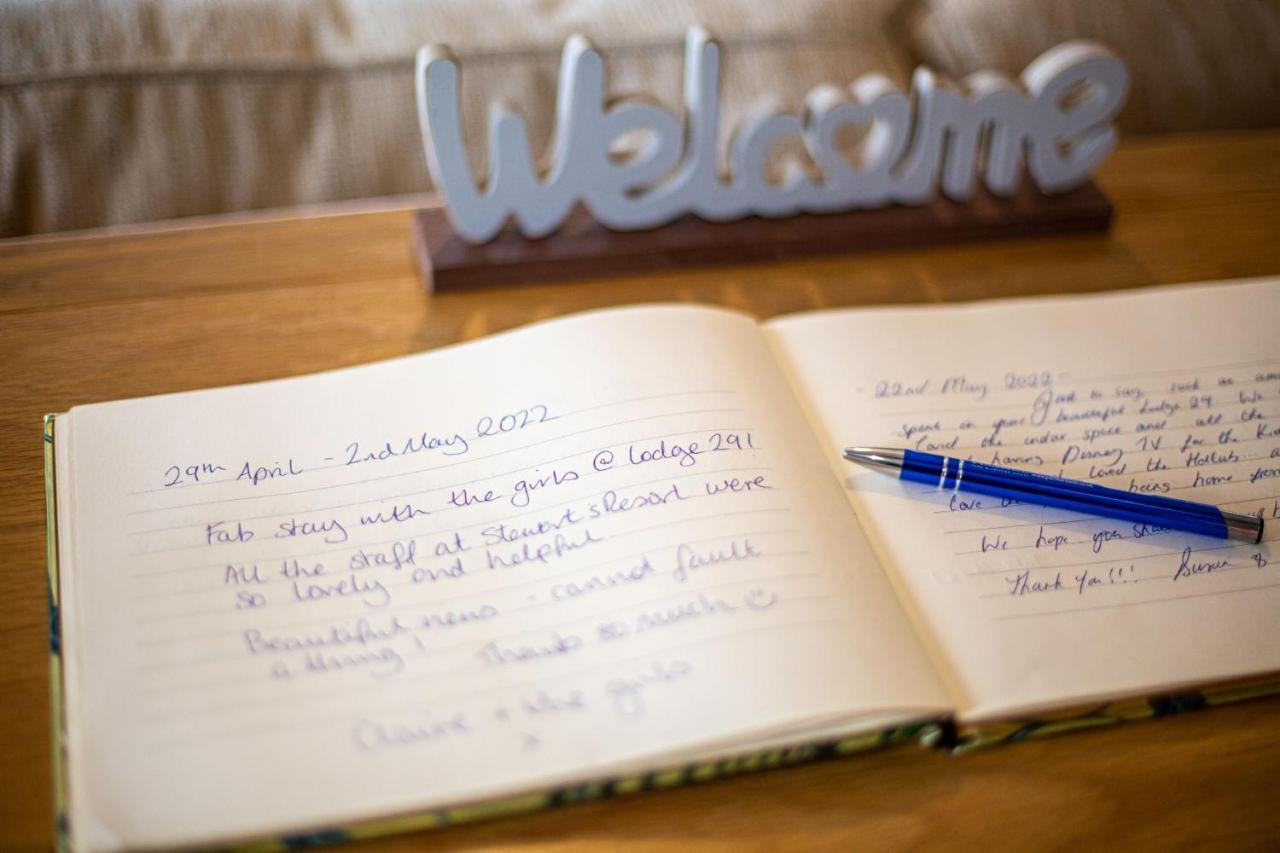 Welcome
29th April - 2nd May 2022
Fab stay with the girls @ Lodge 29!
All the staff at Stewart's Resort were
so lovely and helpful.
Beautiful views - cannot fault
a thing! Thanks so much ☺
Claire + the girls
x
22nd May 2022
Just to say such an
spent in your beautiful Lodge 29. We
Loved the indoor space and all the
having Disney TV for the
Loved the Hottub...
being home from
We hope you
Thank You!!! Susan